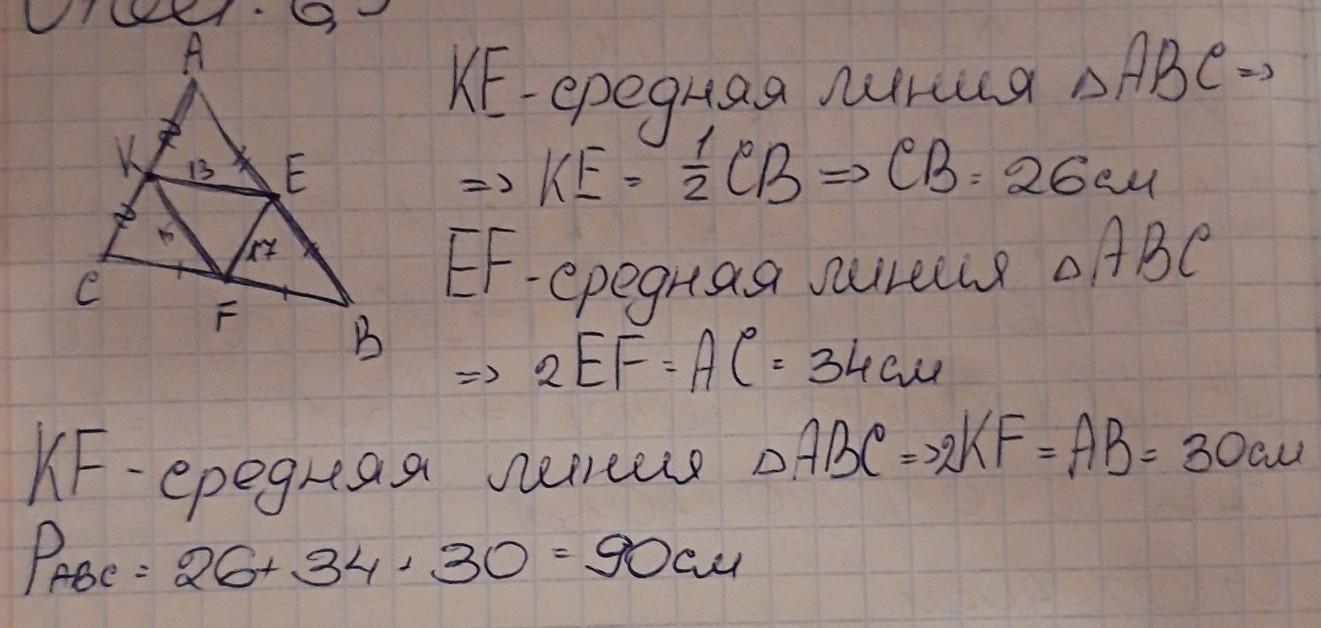 A
K 13 E
17
C F B
KE - средняя линия △ABC =>
=> KE = 1/2 CB => CB = 26см
EF - средняя линия △ABC
=> 2EF = AC = 34см
KF - средняя линия △ABC => 2KF = AB = 30см
PABC = 26 + 34 + 30 = 90см